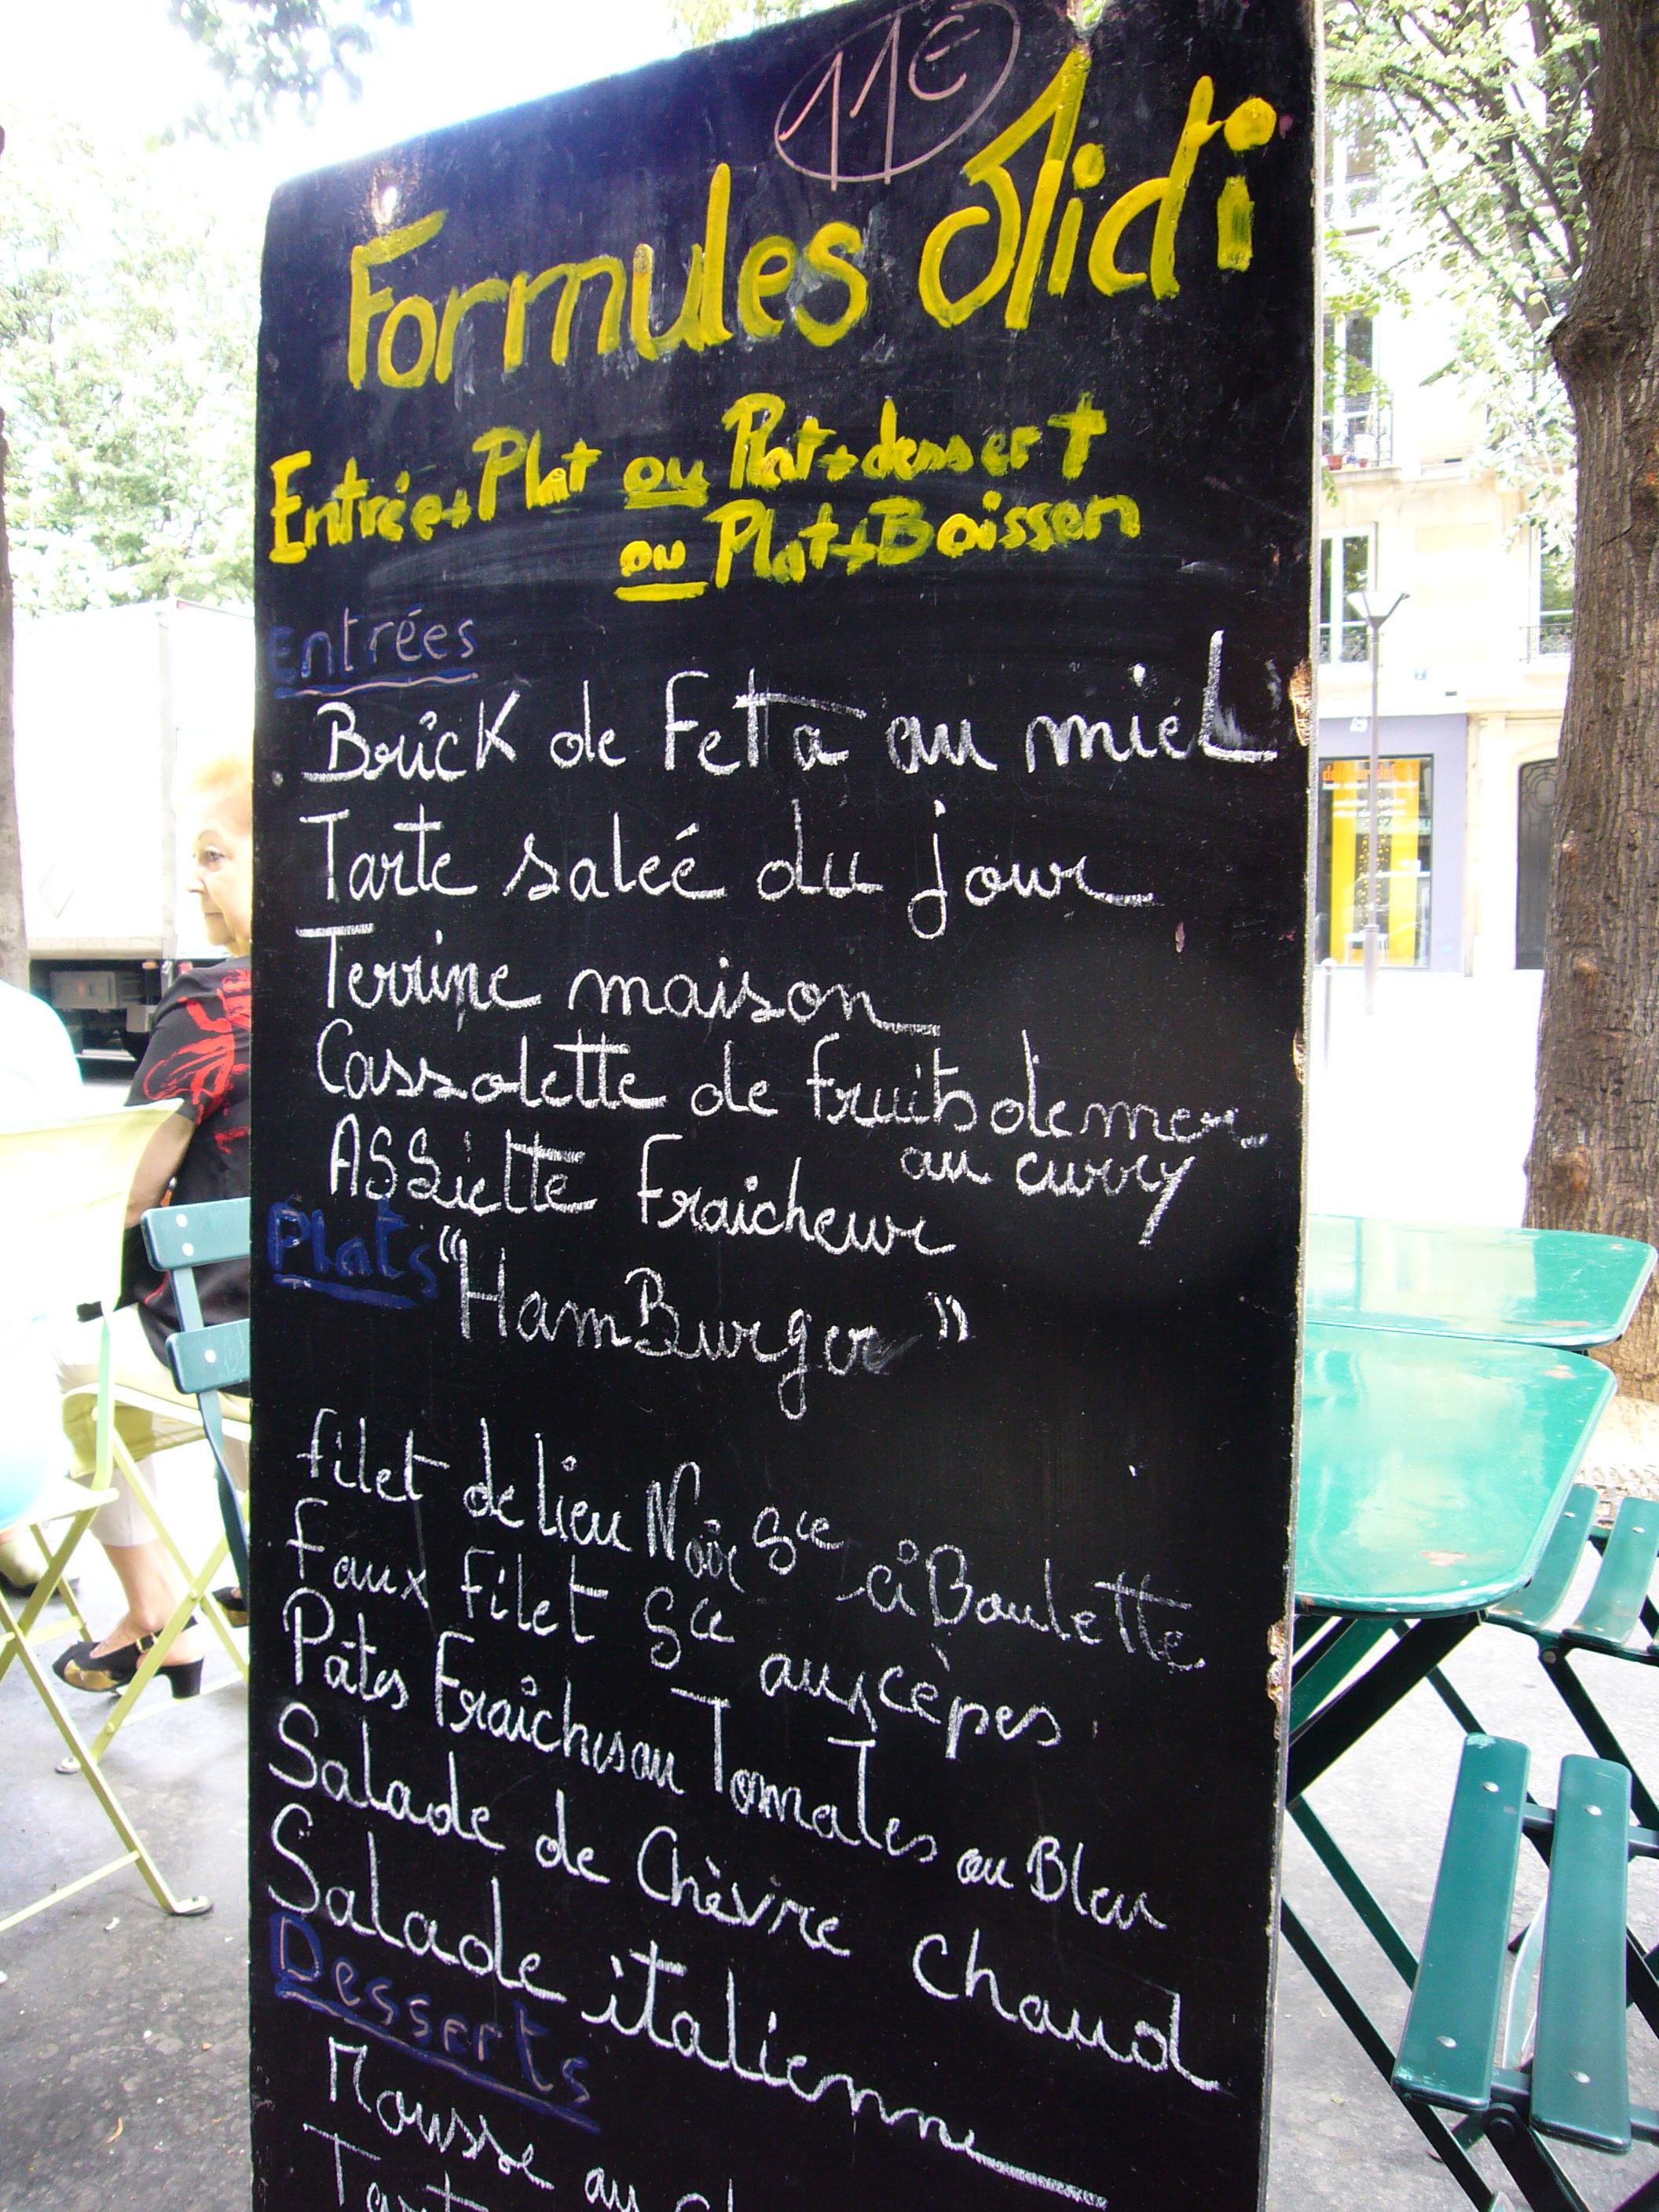 11€
Formules Midi
Entrée+Plat ou Plat+dessert
ou Plat+Boisson
Entrées
Brick de Feta au miel
Tarte saleé du jour
Terrine maison
Cassolette de fruits de mer
au curry
ASSiette Fraicheur
Plats "HamBurger"
filet de lieu Noir Sce ciBoulette
Faux Filet Sce aux cèpes
Pâtes Fraîches au Tomates au Bleu
Salade de Chèvre Chaud
Salade italienne
Desserts
Mousse au